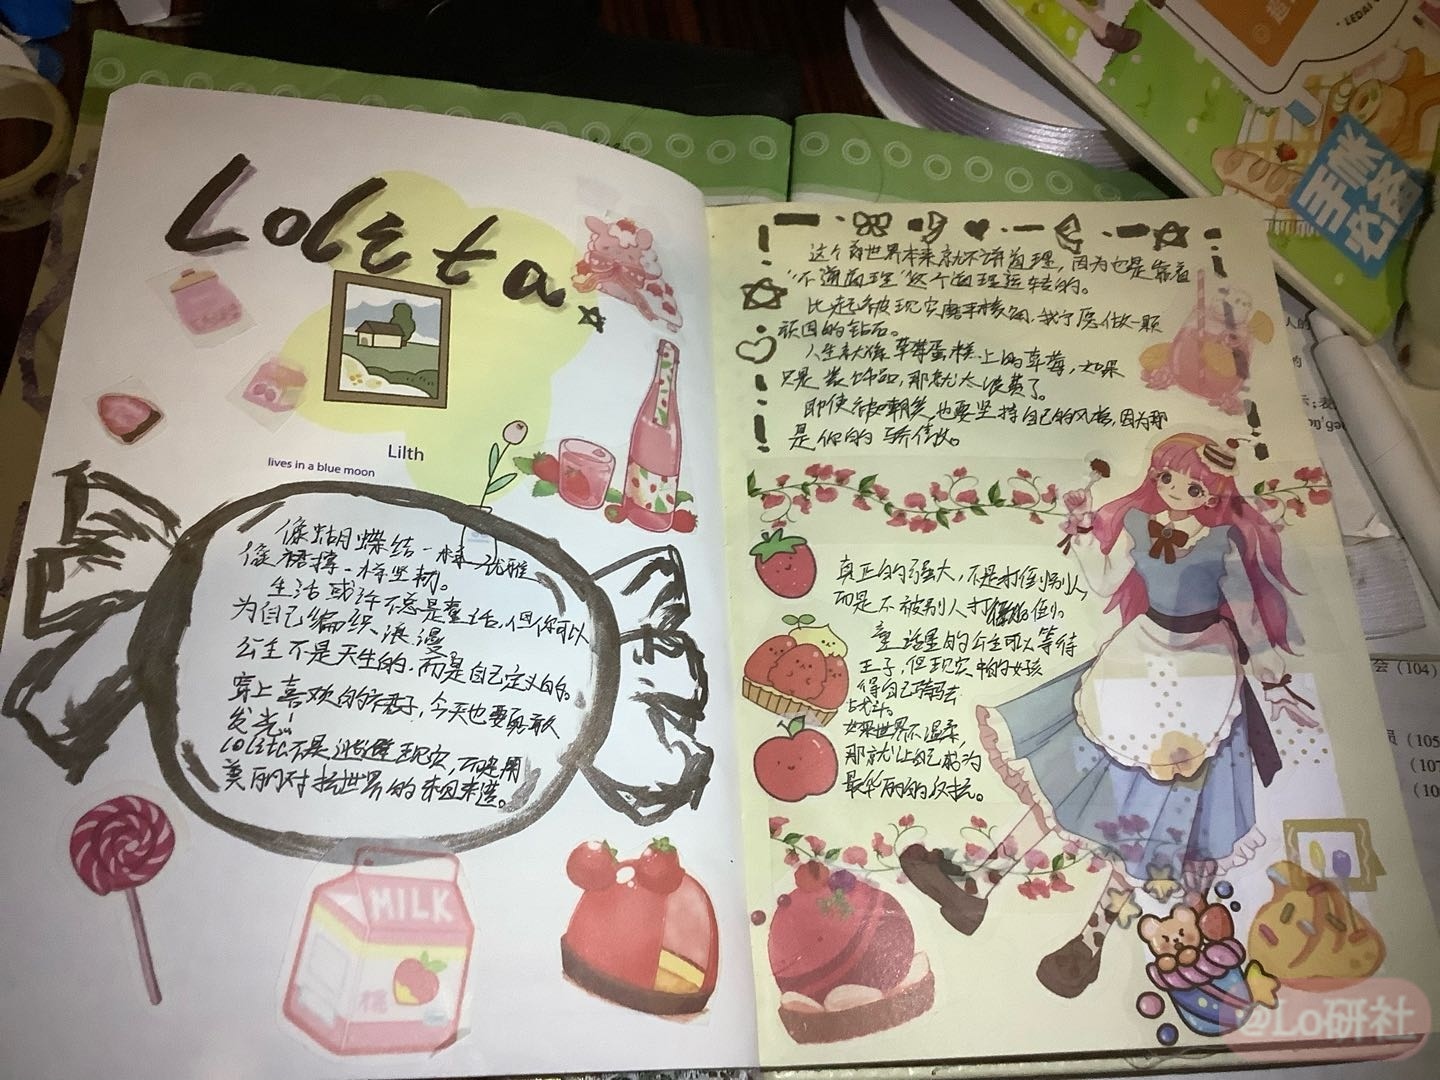 Loleta
Lilth
lives in a blue moon
像蝴蝶结一样优雅
像裙撑一样坚韧。
生活或许不总是童话,但你可以
为自己编织浪漫
公主不是天生的,而是自己定义的。
穿上喜欢的裙子,今天也要勇敢
发光!
lolita不是逃避现实,而是用
美丽对抗世界的
MILK
桃
这个世界本来就不讲道理,因为也是靠着
"不讲道理"这个道理运转的。
比起被现实磨平棱角,我宁愿做一颗
顽固的钻石。
人生就像草莓蛋糕上的草莓,如果
只是装饰品,那就太浪费了。
即使被嘲笑,也要坚持自己的风格,因为那
是你的骄傲。
真正的强大,不是打倒别人,
而是不被别人打倒。
童话里的公主可以等待
王子,但现实中的女孩
得自己骑马去
战斗。
如果世界不温柔,
那就让自己成为
最华丽的反抗。
手帐
必备
LEDAI
会(104)
员(105
(107
(10
@Lo研社